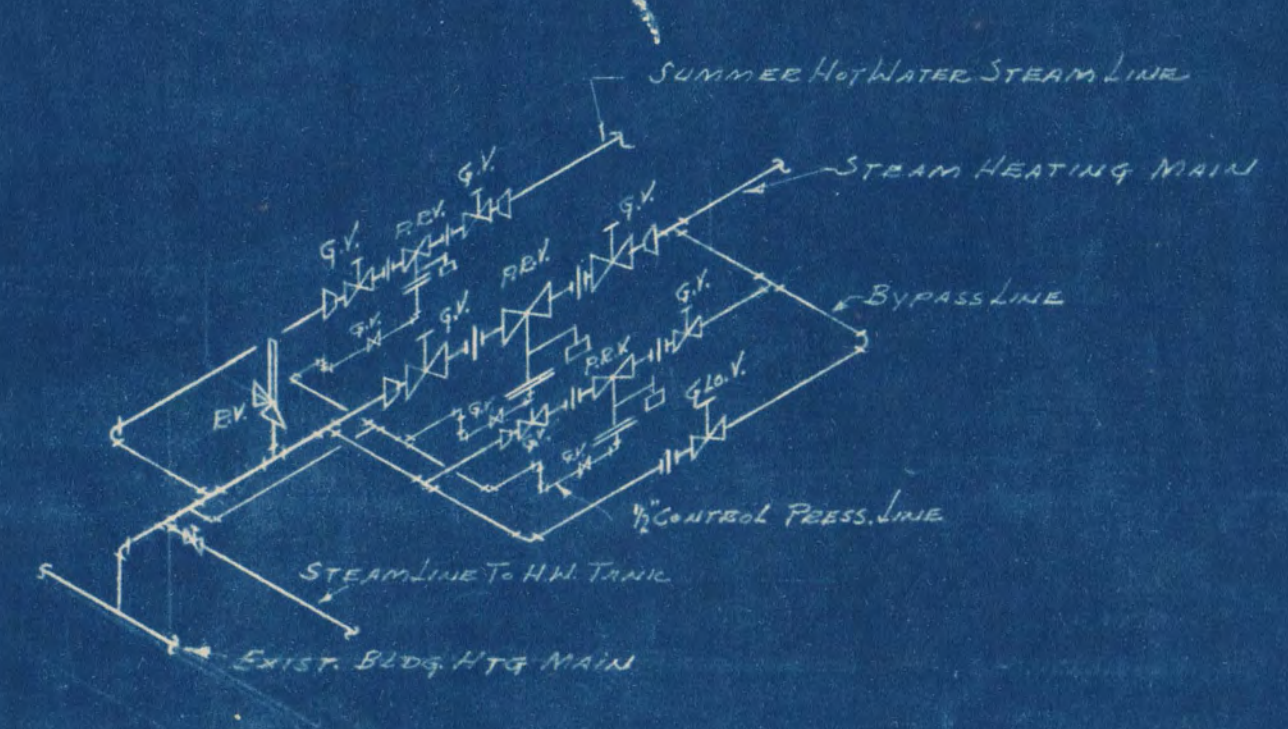 SUMMER HOT WATER STEAM LINE
STEAM HEATING MAIN
G.V.
P.R.V.
G.V.
G.V.
P.R.V.
G.V.
G.V.
G.V.
BYPASS LINE
P.R.V.
GLO.V.
R.V.
G.V.
G.V.
G.V.
1/2" CONTROL PRESS. LINE
STEAM LINE TO H.W. TANK
EXIST. BLDG. HTG MAIN